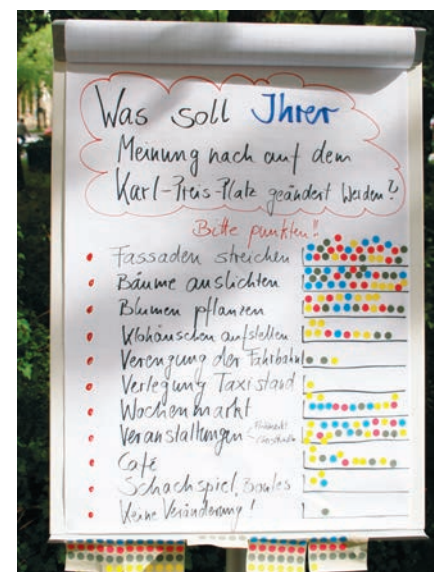 Was soll Ihrer
Meinung nach auf dem
Karl-Preis-Platz geändert werden?
Bitte punkten!!
Fassaden streichen
Bäume auslichten
Blumen pflanzen
Klohäuschen aufstellen
Verengung der Fahrbahn
Verlegung Taxistand
Wochenmarkt
Veranstaltungen
Café
Schachspiel, Boules
Keine Veränderung!